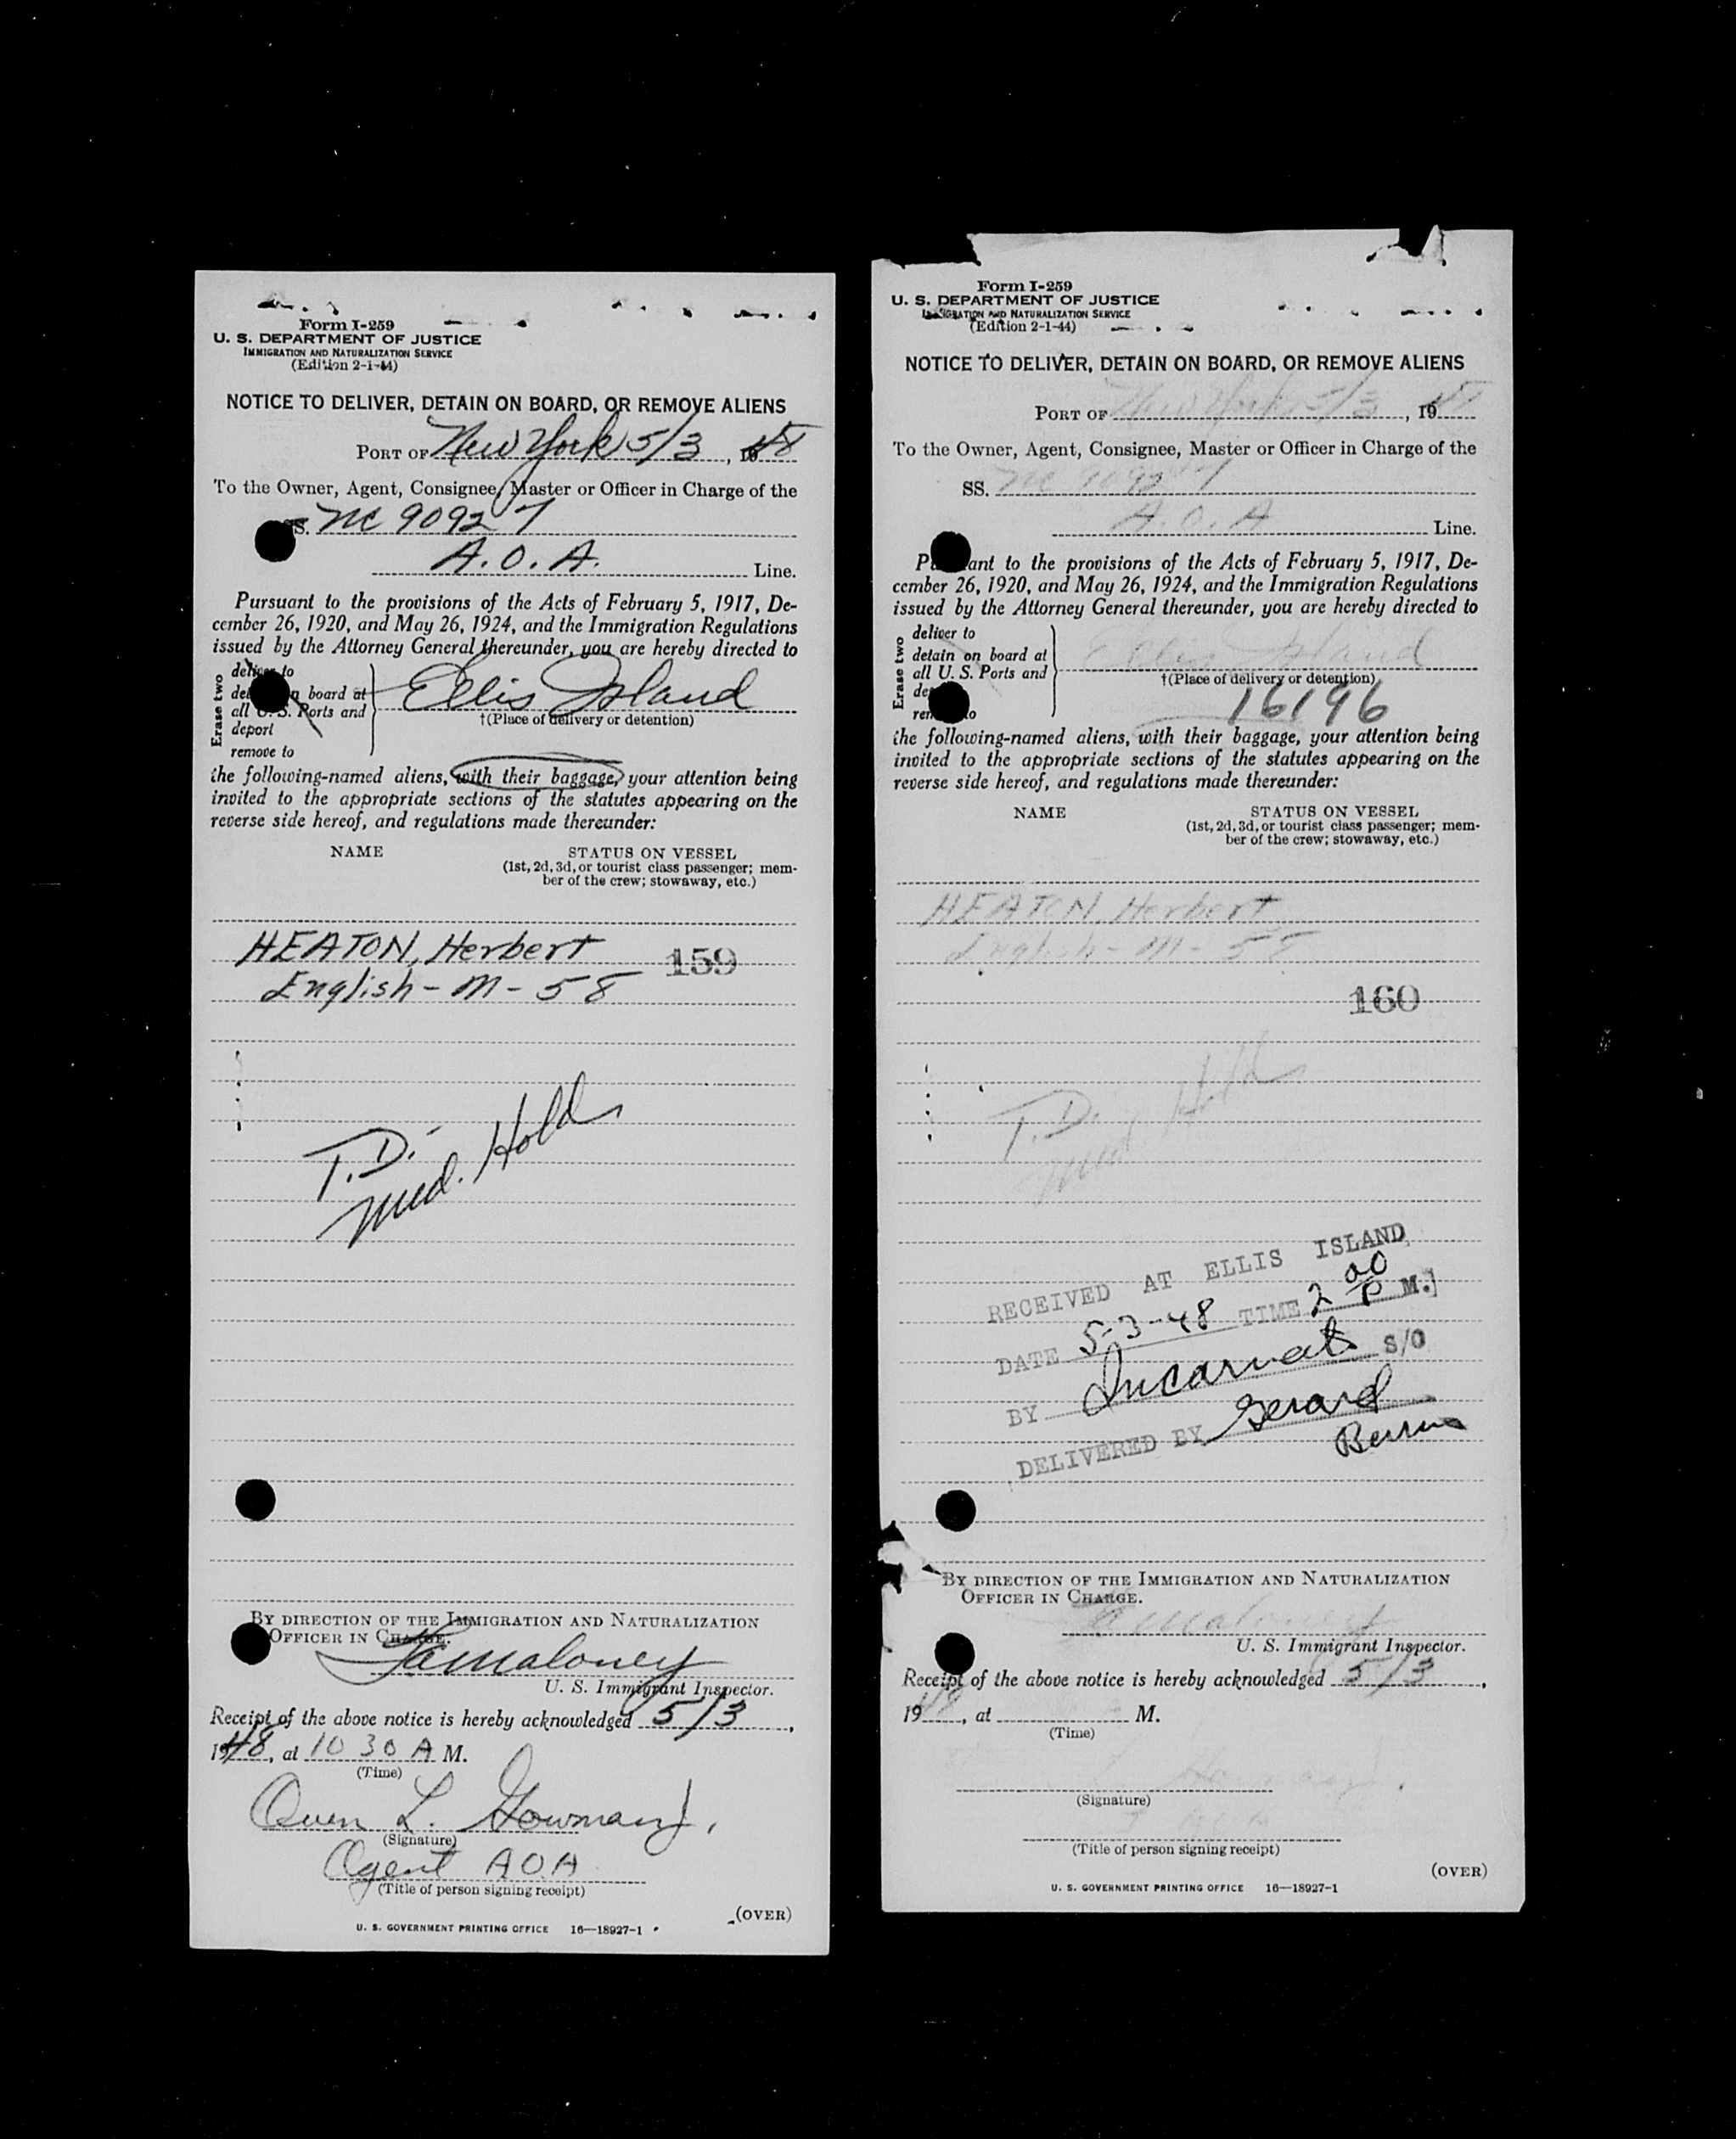 Form I-259
U. S. DEPARTMENT OF JUSTICE
IMMIGRATION AND NATURALIZATION SERVICE
(Edition 2-1-44)
NOTICE TO DELIVER, DETAIN ON BOARD, OR REMOVE ALIENS
PORT OF New York 5/3, 1948
To the Owner, Agent, Consignee, Master or Officer in Charge of the
SS. NC 90927
A.O.A. Line.
Pursuant to the provisions of the Acts of February 5, 1917, De-
cember 26, 1920, and May 26, 1924, and the Immigration Regulations
issued by the Attorney General thereunder, you are hereby directed to
Erase two
deliver to
detain on board at
all U. S. Ports and
deport
remove to
Ellis Island
†(Place of delivery or detention)
the following-named aliens, with their baggage, your attention being
invited to the appropriate sections of the statutes appearing on the
reverse side hereof, and regulations made thereunder:
NAME STATUS ON VESSEL
(1st, 2d, 3d, or tourist class passenger; mem-
ber of the crew; stowaway, etc.)
HEATON, Herbert 159
English - M - 58
T.D.
Med. Hold
BY DIRECTION OF THE IMMIGRATION AND NATURALIZATION
OFFICER IN CHARGE.
Maloney
U. S. Immigrant Inspector.
Receipt of the above notice is hereby acknowledged 5/3,
1948, at 10 30 A M.
(Time)
Owen L.
(Signature)
Agent AOA
(Title of person signing receipt)
(OVER)
U. S. GOVERNMENT PRINTING OFFICE 16—18927-1
Form I-259
U. S. DEPARTMENT OF JUSTICE
IMMIGRATION AND NATURALIZATION SERVICE
(Edition 2-1-44)
NOTICE TO DELIVER, DETAIN ON BOARD, OR REMOVE ALIENS
PORT OF New York 5/3, 1948
To the Owner, Agent, Consignee, Master or Officer in Charge of the
SS. NC 90927
A.O.A Line.
Pursuant to the provisions of the Acts of February 5, 1917, De-
cember 26, 1920, and May 26, 1924, and the Immigration Regulations
issued by the Attorney General thereunder, you are hereby directed to
Erase two
deliver to
detain on board at
all U. S. Ports and
de
remove to
Ellis Island
†(Place of delivery or detention)
16196
the following-named aliens, with their baggage, your attention being
invited to the appropriate sections of the statutes appearing on the
reverse side hereof, and regulations made thereunder:
NAME STATUS ON VESSEL
(1st, 2d, 3d, or tourist class passenger; mem-
ber of the crew; stowaway, etc.)
HEATON, Herbert
English - M - 58
160
T.D.
Med Hold
RECEIVED AT ELLIS ISLAND
DATE 5-3-48 TIME 2 00 P M.
BY S/O
DELIVERED BY Gerard
BY DIRECTION OF THE IMMIGRATION AND NATURALIZATION
OFFICER IN CHARGE.
Maloney
U. S. Immigrant Inspector.
Receipt of the above notice is hereby acknowledged 5/3,
1948, at M.
(Time)
(Signature)
(Title of person signing receipt)
(OVER)
U. S. GOVERNMENT PRINTING OFFICE 16—18927-1